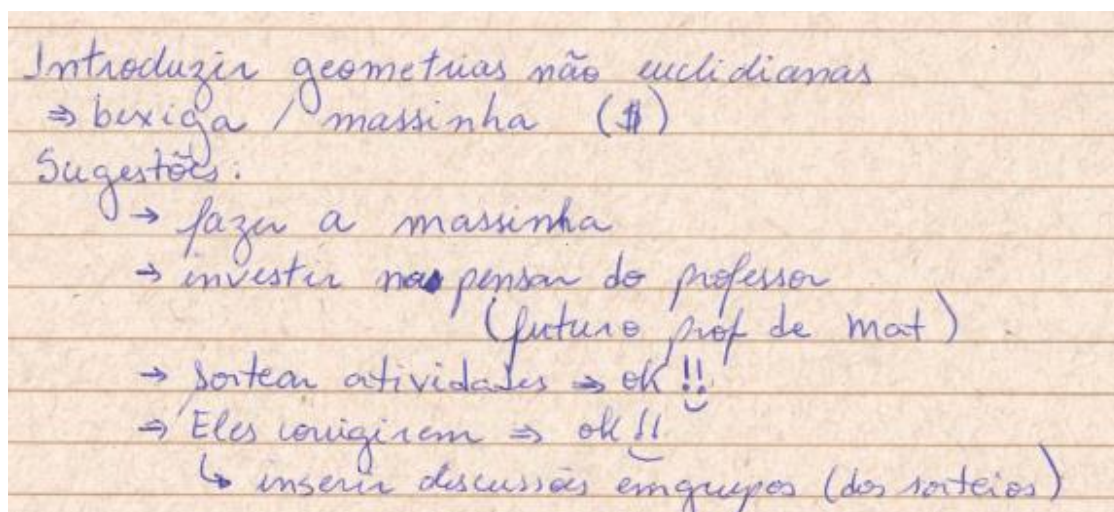 Introduzir geometrias não euclidianas
⇒ bexiga / massinha ($)
Sugestões:
→ fazer a massinha
→ investir no pensar do professor
(futuro prof de mat)
→ sortear atividades ⇒ ok!!
⇒ Eles corrigirem ⇒ ok!!
↳ inserir discussões em grupos (dos sorteios)